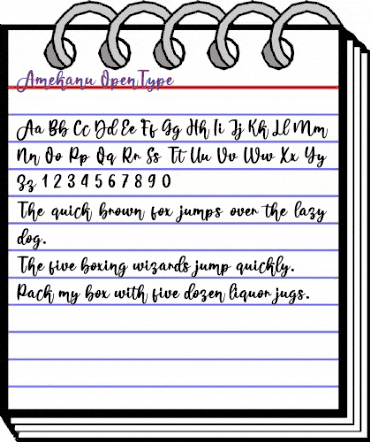 Amekanu OpenType
Aa Bb Cc Dd Ee Ff Gg Hh Ii Jj Kk Ll Mm
Nn Oo Pp Qq Rr Ss Tt Uu Vv Ww Xx Yy
Zz 1 2 3 4 5 6 7 8 9 0
The quick brown fox jumps over the lazy
dog.
The five boxing wizards jump quickly.
Pack my box with five dozen liquor jugs.